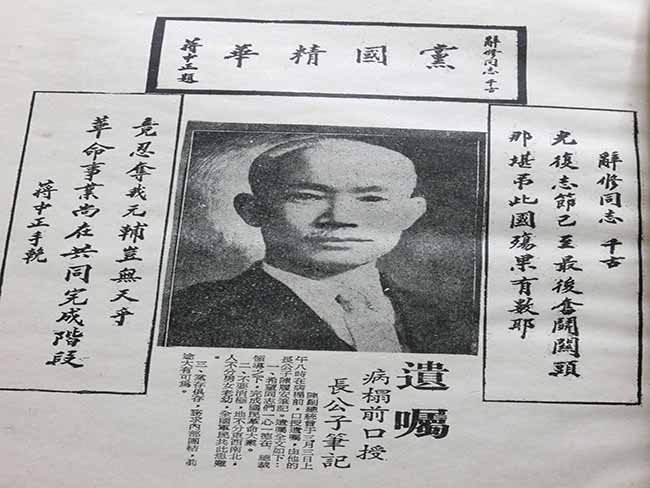 辭修同志 千古
黨國精華
蔣中正題
辭修同志 千古
光復志節已至最後奮鬪關頭
那堪弔此國殤果有數耶
竟忍奪我元輔豈無天乎
革命事業尚在共同完成階段
蔣中正手輓
遺囑
病榻前口授
長公子筆記
陳副總統曾于三月三日上
午八時在病榻前,口授遺囑,由他的
長公子陳履安筆記。遺囑全文如下:
一、希望同志們一心一德在 總裁
領導之下,完成國民革命大業。
二、不要消極,地不分東西南北,
人不分男女老幼,全國軍民共此患難
。
三、黨存俱存,務求內部團結,前
途大有可為。